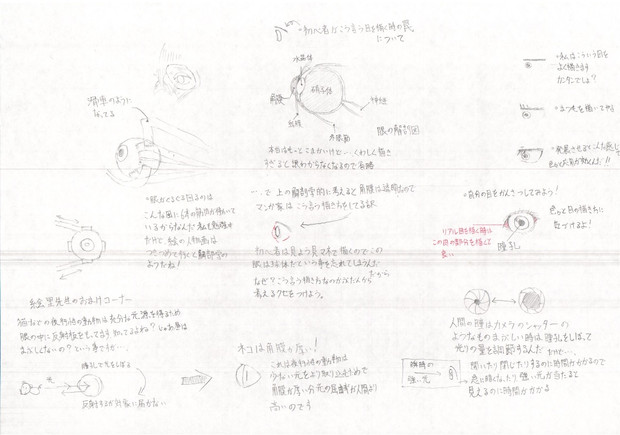 "初心者がこう言う目を描く時の罠
について
水晶体
硝子体
角膜
虹彩
神経
水晶面
眼の解剖図
滑車のように
なってる
本当はもっとこまかいけど…くわしく描き
すぎると訳わからなくなるので省略
"私はこういう目を
よく描きます
カンタンでしょ?
"まつ毛を描いてやる
"発展させるとこんな感じで
色々と応用が効くんだ!!
"眼がぐるぐる回るのは
こんな風に6本の筋肉が働いて
いるからなんだ 私も勉強中
だけど、絵の人物画は
つきつめて行くと解剖学の
ようだね!
…で上の解剖学的に考えると角膜は透明なので
マンガ家はこう言う描き方をしてる訳
初心者は見よう見マネで描くのでこの
眼は球体だという事を忘れてしまうんだ
だから
なぜ?こう言う描き方なのかな?から
考えるクセをつけよう。
"自分の目をかんさつしてみよう!
色々と目の描き方に
気づけるよ!
リアル目を描く時は
この目の部分を描くと
良い
瞳孔
絵里先生のおまけコーナー
猫などの夜行性の動物は充分な光源を得るため
眼の中に反射板をもってます 知ってるよね?じゃあ昼は
まぶしくないの?という事ですが…
瞳孔で光をしぼる
光
反射するが対象に届かない
ネコは角膜が広い!
これは夜行性の動物は
少ない光をより取り込むためで
角膜が広い分光の屈折率が人間より
高いのです
人間の瞳はカメラのシャッターの
ようなもの まぶしい時は瞳孔をしぼって
光りの量を調節するんだ だけど…
開いたり閉じたりするのに時間がかかるので
急に暗くなったり強い光が当たると
見えるのに時間がかかる
瞬時の
強い光